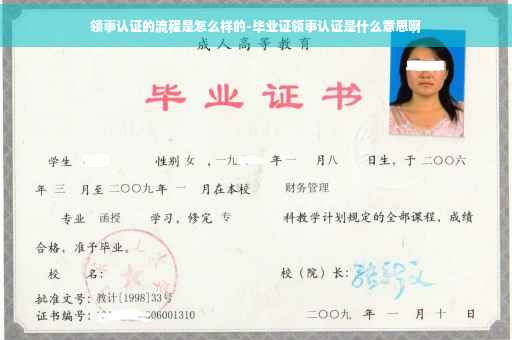 领事认证的流程是怎么样的-毕业证领事认证是什么意思啊
成人高等教育
毕业证书
学生 性别 女 ，一九 年 一 月八 日生，于 二〇〇六
年 三 月至 二〇〇九 年 一 月在本校 财务管理
专业 函授 学习，修完 专 科教学计划规定的全部课程，成绩
合格，准予毕业。
校 名： 校（院）长：
批准文号：教计[1998]33号
证书编号： 06001310 二〇〇九 年 一 月 十 日